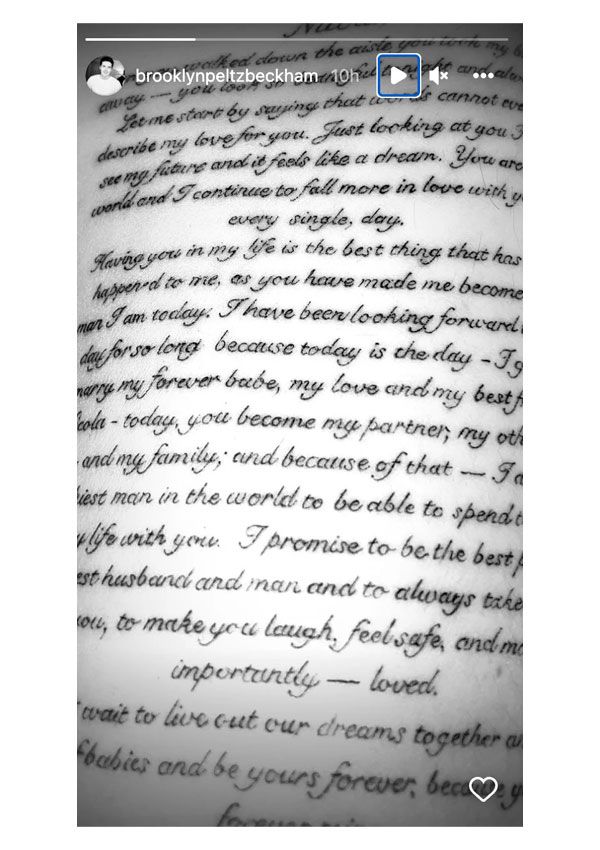 brooklynpeltzbeckham 10h
walked down the aisle you took my
away — you look so tonight and
Let me start by saying that words cannot
describe my love for you. Just looking at you I
see my future and it feels like a dream. You are
world and I continue to fall more in love with y
every single, day.
Having you in my life is the best thing that has
happened to me, as you have made me become
man I am today. I have been looking forward
day for so long because today is the day - I g
marry my forever babe, my love and my best f
cola - today, you become my partner, my oth
and my family; and because of that — I a
iest man in the world to be able to spend t
y life with you. I promise to be the best
est husband and man and to always take
you, to make you laugh, feel safe, and mo
importantly — loved.
wait to live out our dreams together a
f babies and be yours forever, because y